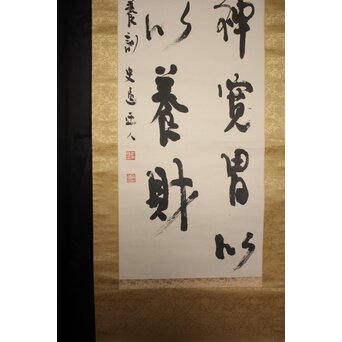 神寛胃以
以養財
養訓 史人